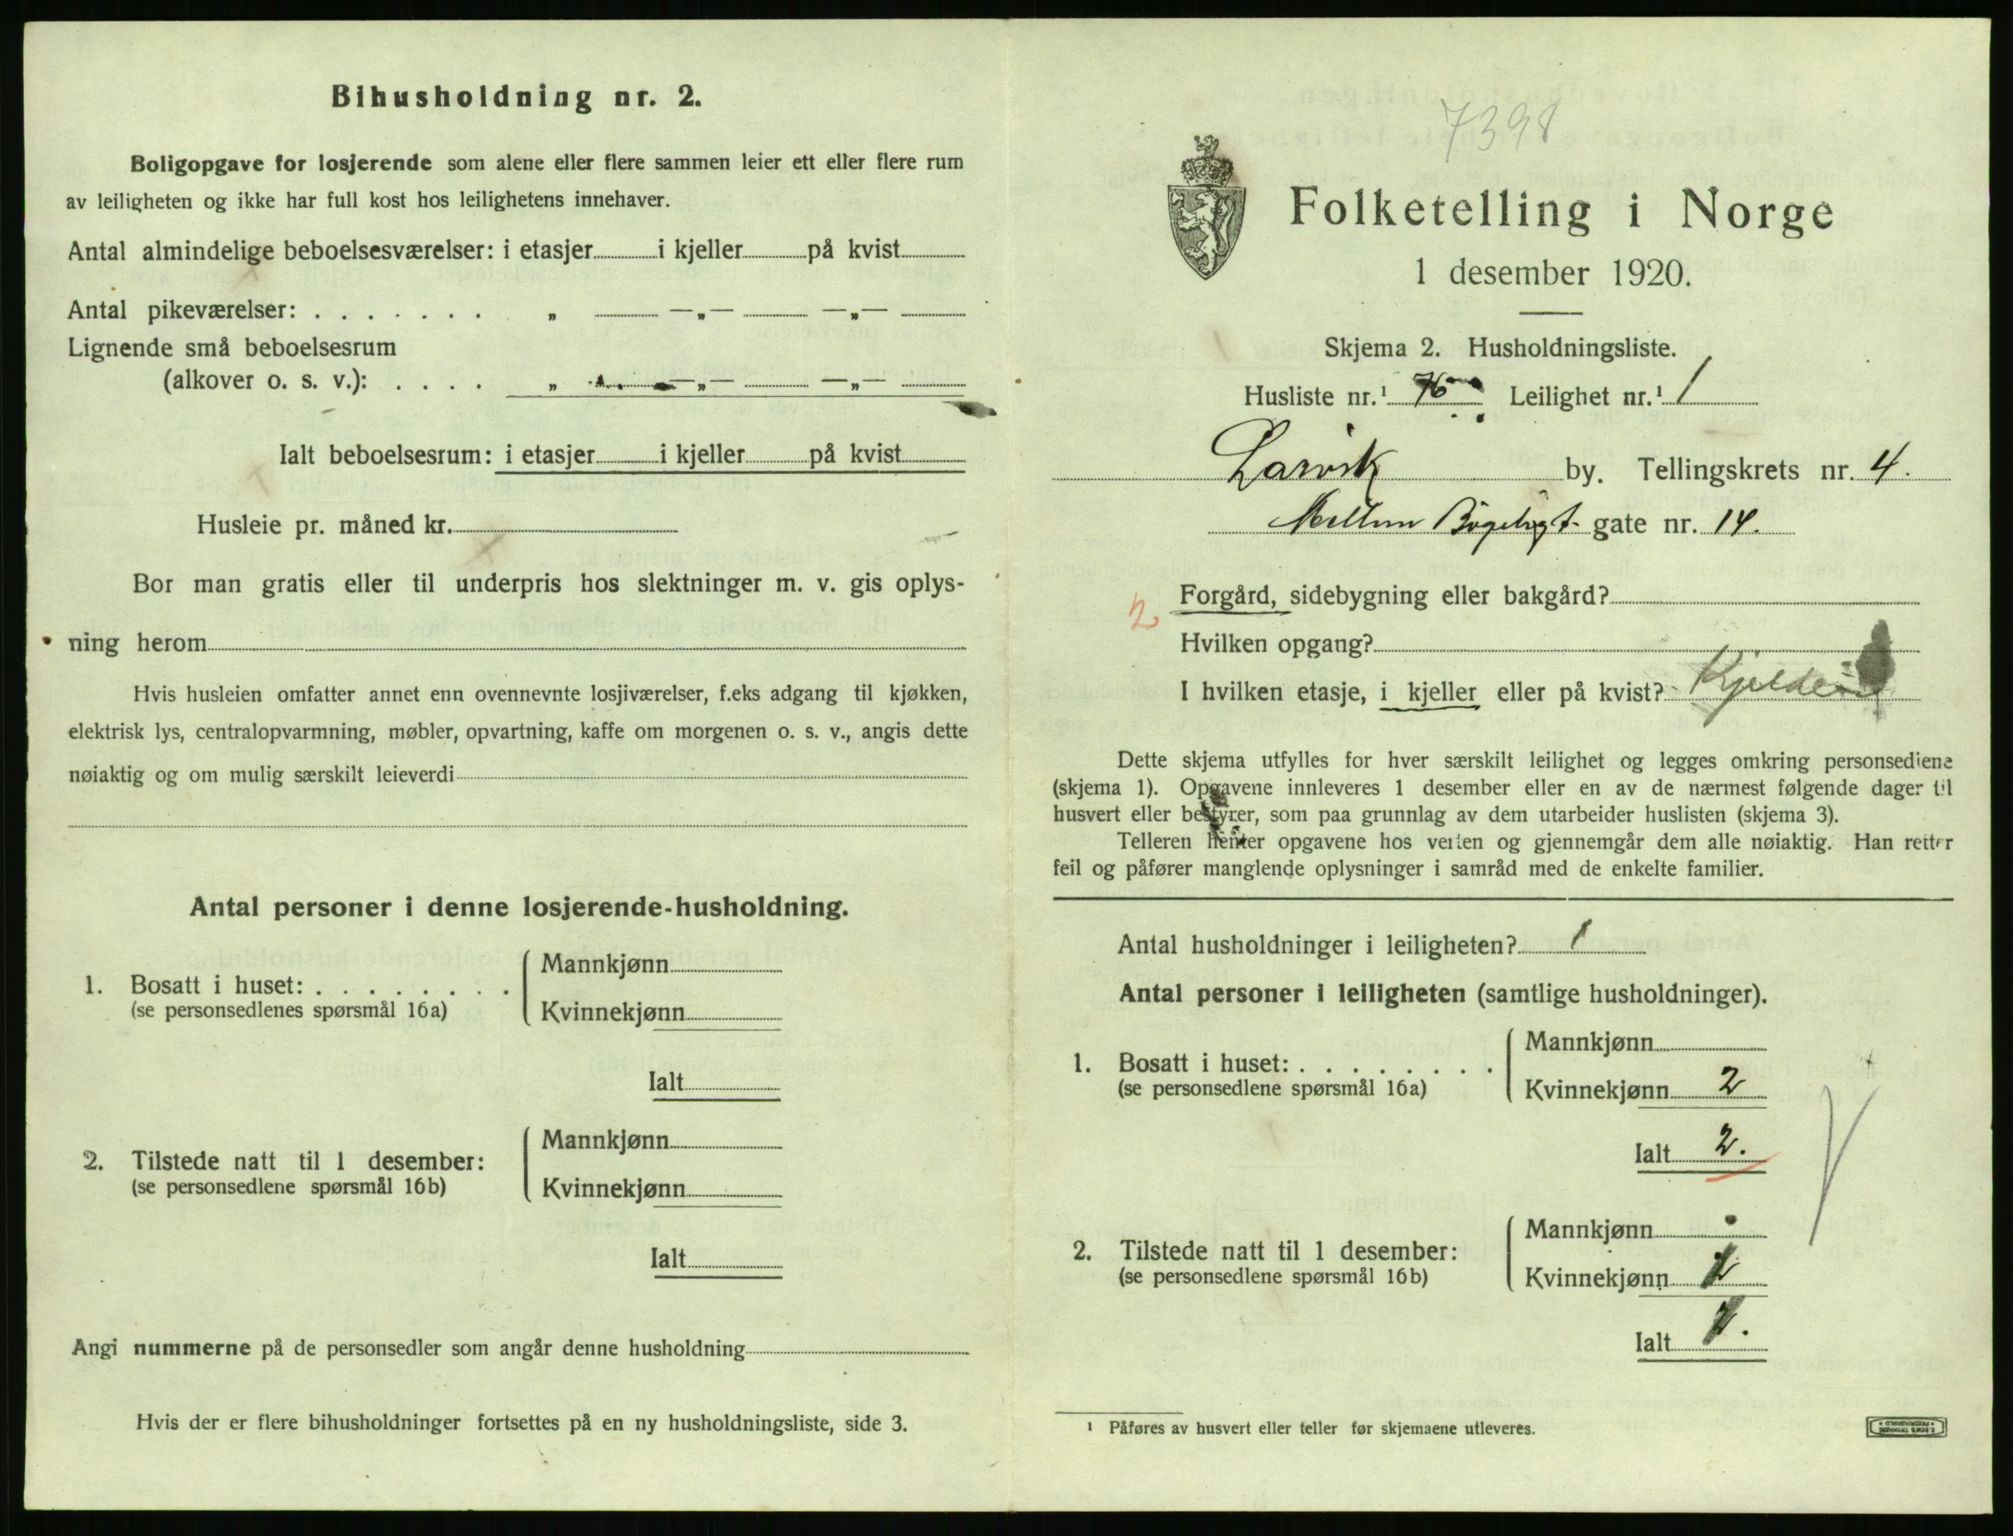 Bihusholdning nr. 2.
Boligopgave for losjerende som alene eller flere sammen leier ett eller flere rum
av leiligheten og ikke har full kost hos leilighetens innehaver.
Antal almindelige beboelsesværelser: i etasjer i kjeller på kvist
Antal pikeværelser: . . . . . . . „ —„— —„—
Lignende små beboelsesrum
(alkover o. s. v.): . . . . „ —„— —„—
Ialt beboelsesrum: i etasjer i kjeller på kvist
Husleie pr. måned kr.
Bor man gratis eller til underpris hos slektninger m. v. gis oplys-
ning herom
Hvis husleien omfatter annet enn ovennevnte losjiværelser, f.eks adgang til kjøkken,
elektrisk lys, centralopvarmning, møbler, opvartning, kaffe om morgenen o. s. v., angis dette
nøiaktig og om mulig særskilt leieverdi
Antal personer i denne losjerende-husholdning.
1. Bosatt i huset: . . . . . . . .
(se personsedlenes spørsmål 16a)
Mannkjønn
Kvinnekjønn
Ialt
2. Tilstede natt til 1 desember:
(se personsedlene spørsmål 16b)
Mannkjønn
Kvinnekjønn
Ialt
Angi nummerne på de personsedler som angår denne husholdning
Hvis der er flere bihusholdninger fortsettes på en ny husholdningsliste, side 3.
7398
Folketelling i Norge
1 desember 1920.
Skjema 2. Husholdningsliste.
Husliste nr.¹ 76 Leilighet nr.¹ 1
Larvik by. Tellingskrets nr. 4.
Mellem gate nr. 14.
2 Forgård, sidebygning eller bakgård?
Hvilken opgang?
I hvilken etasje, i kjeller eller på kvist? Kjelderen
Dette skjema utfylles for hver særskilt leilighet og legges omkring personsedlene
(skjema 1). Opgavene innleveres 1 desember eller en av de nærmest følgende dager til
husvert eller bestyrer, som paa grunnlag av dem utarbeider huslisten (skjema 3).
Telleren henter opgavene hos verten og gjennemgår dem alle nøiaktig. Han retter
feil og påfører manglende oplysninger i samråd med de enkelte familier.
Antal husholdninger i leiligheten? 1
Antal personer i leiligheten (samtlige husholdninger).
1. Bosatt i huset: . . . . . . . .
(se personsedlene spørsmål 16a)
Mannkjønn
Kvinnekjønn 2
Ialt 2.
2. Tilstede natt til 1 desember:
(se personsedlene spørsmål 16b)
Mannkjønn
Kvinnekjønn
Ialt
¹ Påføres av husvert eller teller før skjemaene utleveres.